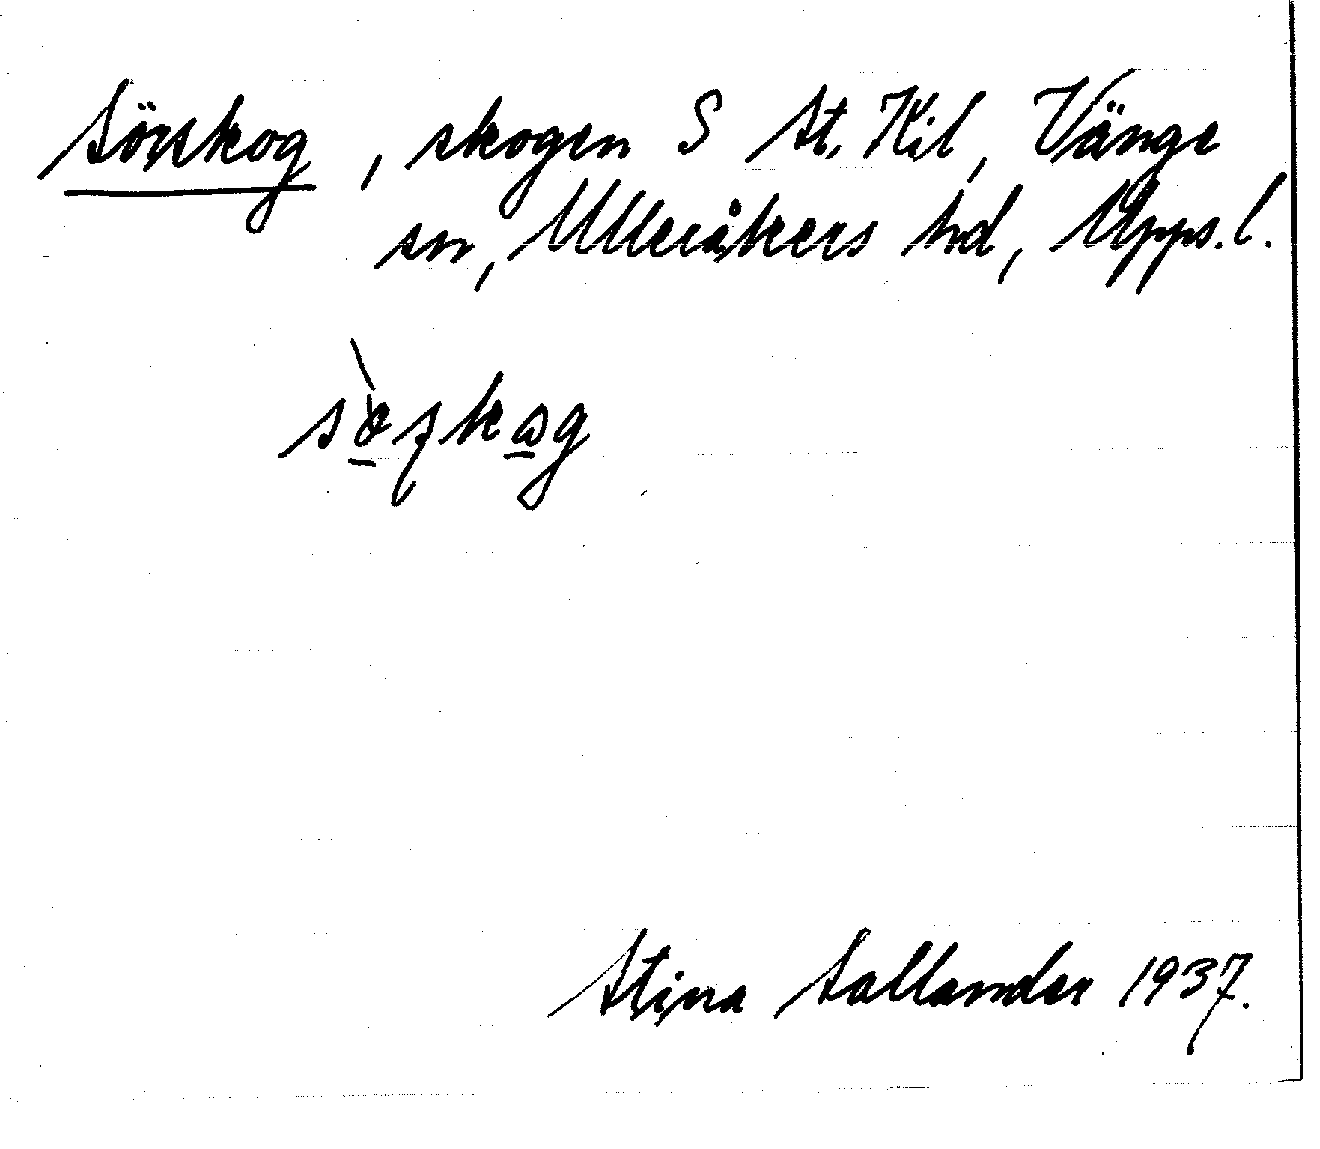 Sörskog, skogen S St. Kil, Vänge
sn, Ulleråkers hd, Upps. l.
Stina Sallander 1937.